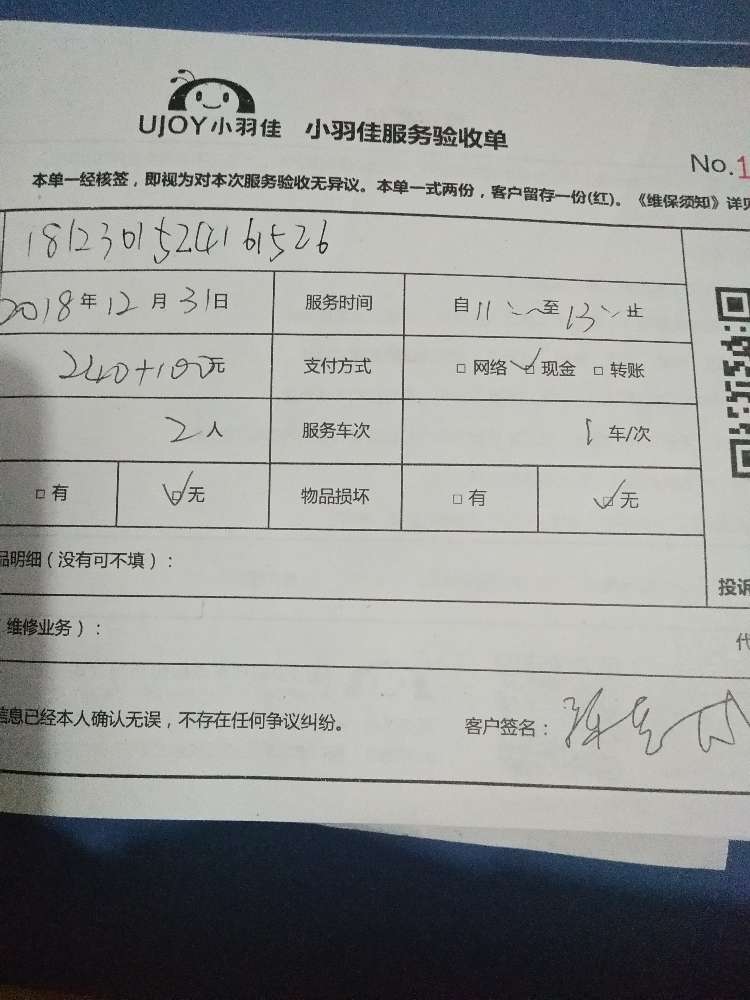 UJOY小羽佳 小羽佳服务验收单
No.1
本单一经核签，即视为对本次服务验收无异议。本单一式两份，客户留存一份(红)。《维保须知》详见
1812301524161526
2018年12月31日 服务时间 自11 至13 止
240+100元 支付方式 □网络 □现金 □转账
2人 服务车次 1车/次
□有 □无 物品损坏 □有 □无
品明细（没有可不填）：
投诉
维修业务）：
代
信息已经本人确认无误，不存在任何争议纠纷。 客户签名：